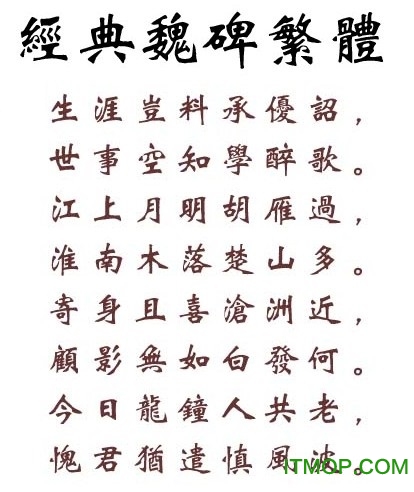 經典魏碑繁體
生涯豈料承優詔，
世事空知學醉歌。
江上月明胡雁過，
淮南木落楚山多。
寄身且喜滄洲近，
顧影無如白發何。
今日龍鐘人共老，
愧君猶遣慎風波。
ITMOP.COM